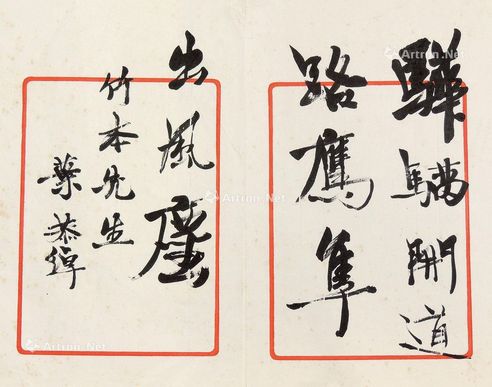 驊騮開道
路鷹隼
出風塵
竹本先生
葉恭綽
Artron.Net
Artron.Net
Artron.Net
Artron.Net